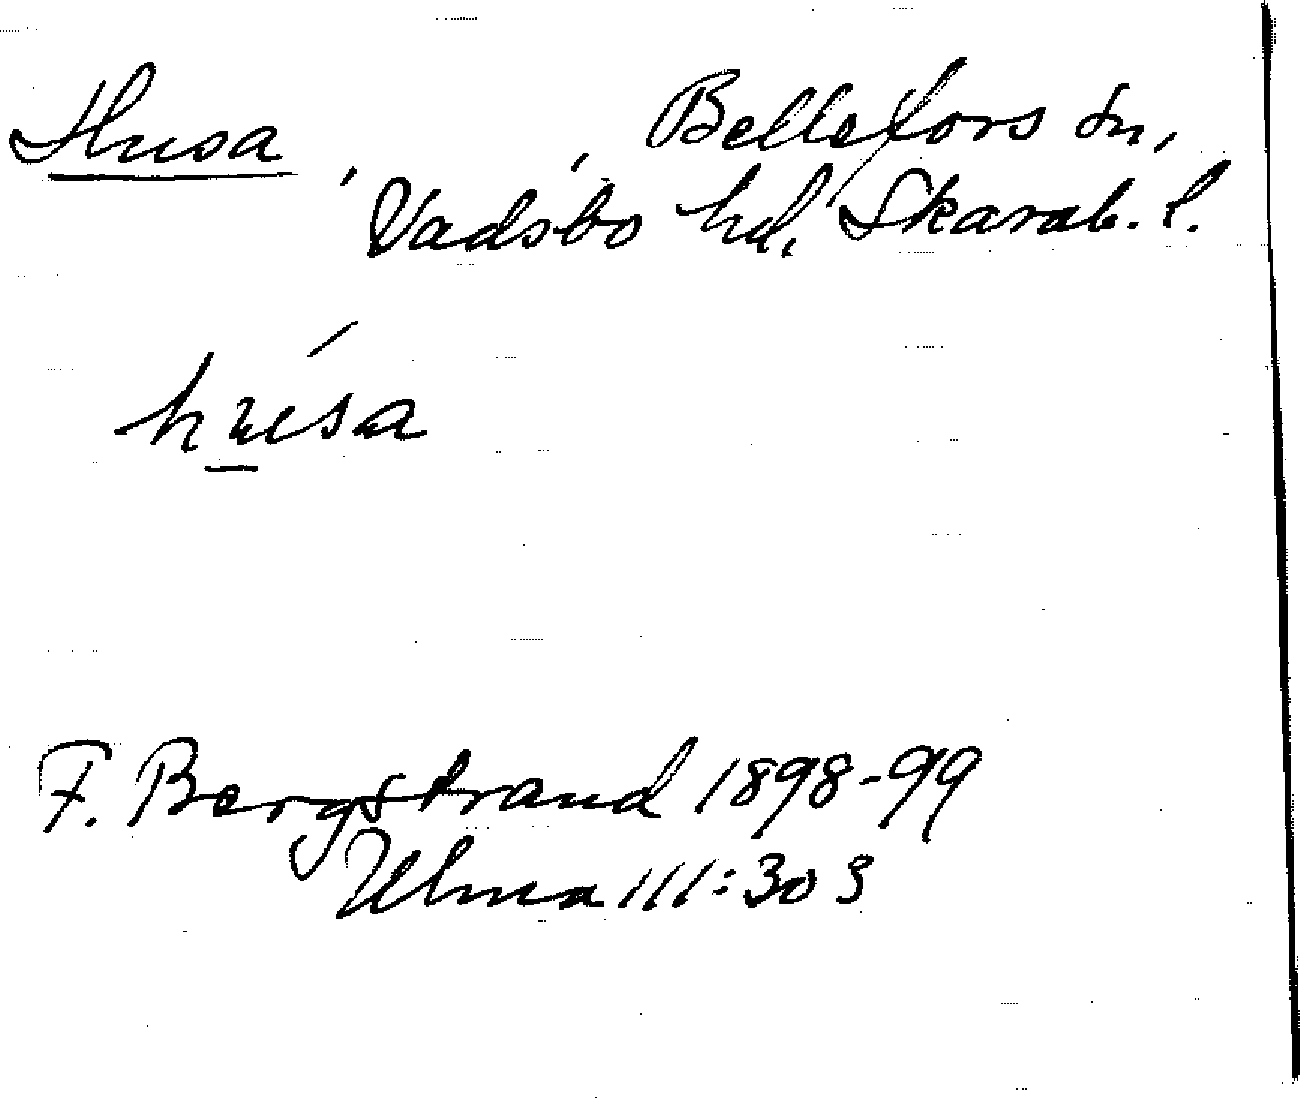 Husa , , Bellefors sn,
Vadsbo hd, Skarab. l.
húsa
F. Bergstrand 1898-99
Ulma 111:303